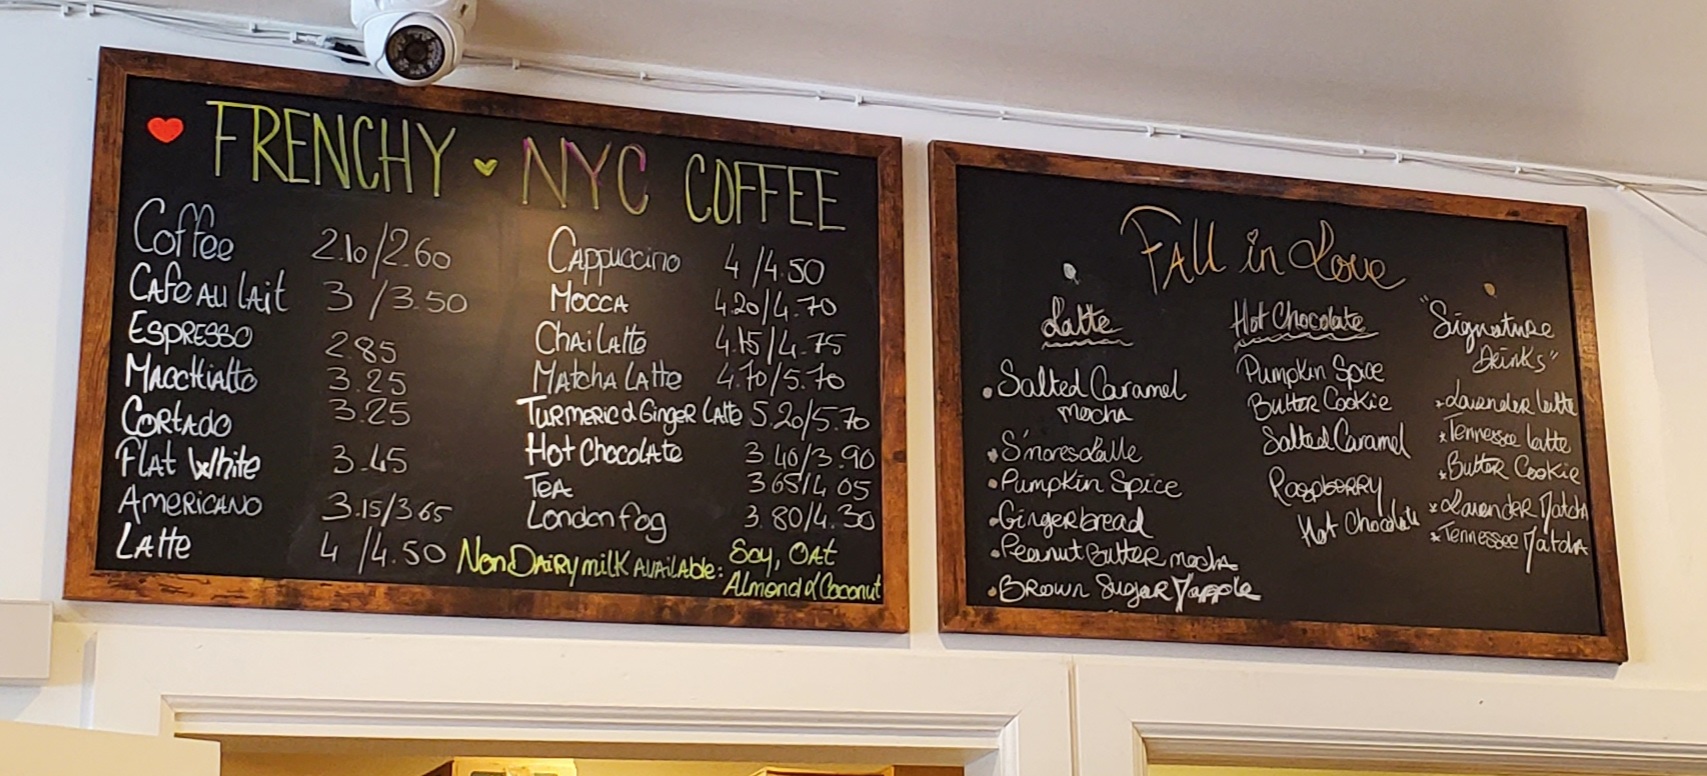 FRENCHY NYC COFFEE
Coffee 2.10/2.60
Cafe Au Lait 3/3.50
Espresso 2.85
Macchiatto 3.25
Cortado 3.25
Flat White 3.45
Americano 3.15/3.65
Latte 4/4.50
Cappuccino 4/4.50
Mocca 4.20/4.70
Chai Latte 4.15/4.75
Matcha Latte 4.70/5.70
Turmeric & Ginger Latte 5.20/5.70
Hot Chocolate 3.40/3.90
Tea 3.65/4.05
London Fog 3.80/4.30
Non Dairy milk Available: Soy, Oat
Almond & Coconut
Fall in Love
Latte
Salted Caramel
Mocha
S'mores Latte
Pumpkin Spice
Gingerbread
Peanut Butter mocha
Brown Sugar Mapple
Hot Chocolate
Pumpkin Spice
Butter Cookie
Salted Caramel
Raspberry
Hot Chocolate
"Signature
Drinks"
Lavender latte
Tennessee latte
Butter Cookie
Lavender Matcha
Tennessee Matcha